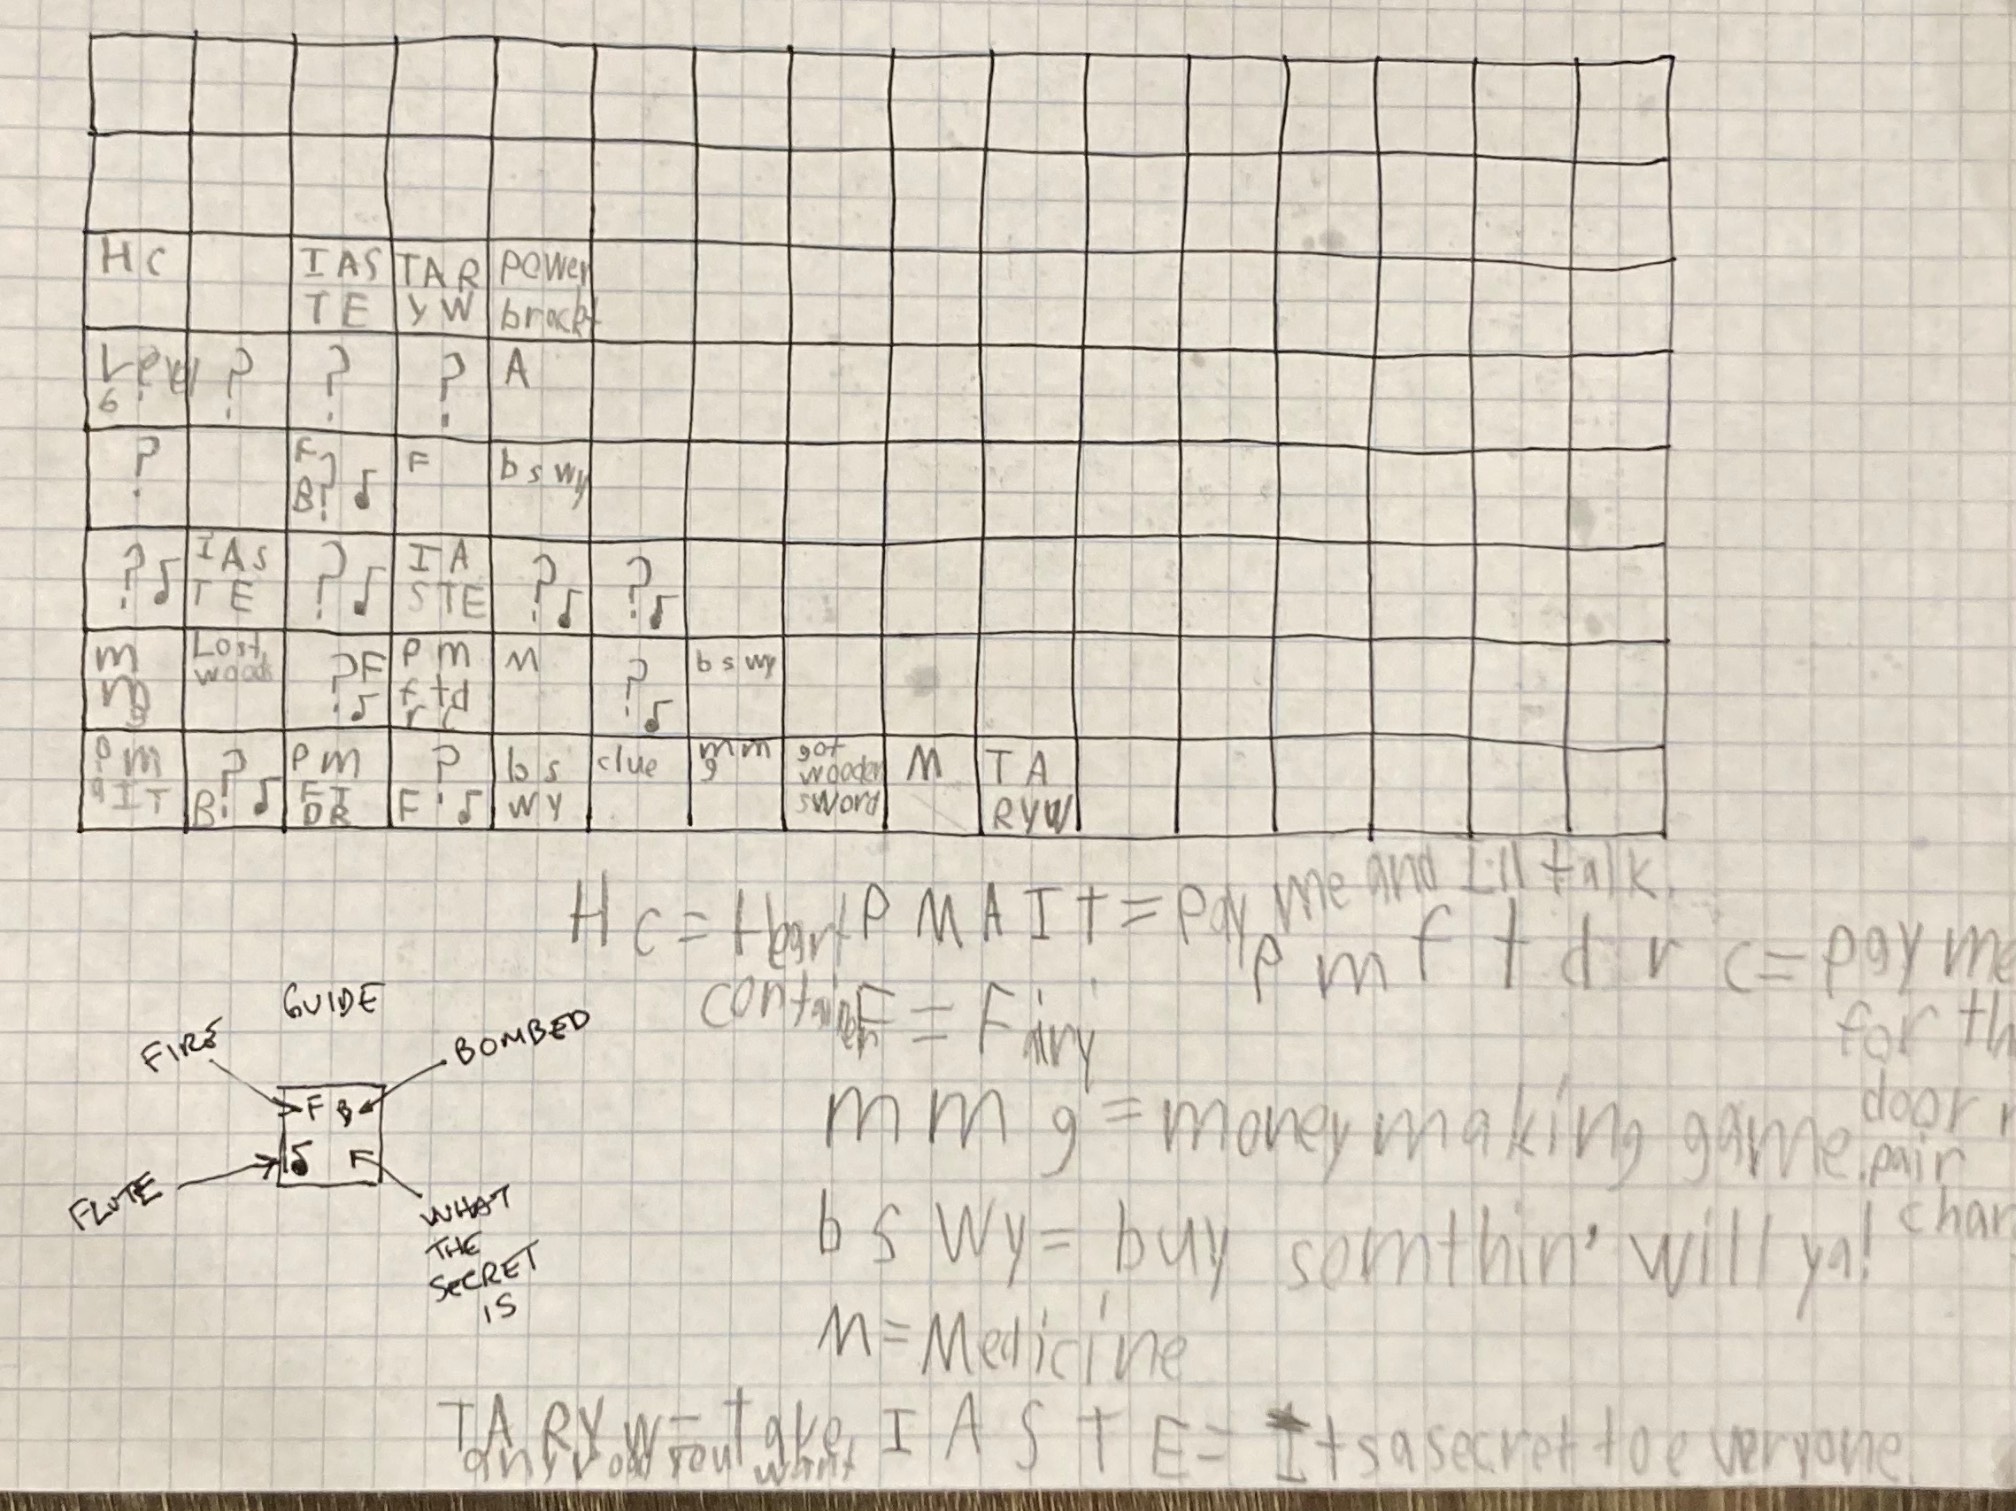 H C
I A S
T E
T A R
Y W
Power
brackt
Level
6
?
?
?
A
?
F ?
B ♪
F
b s wy
? ♪
I A S
T E
? ♪
I A
S T E
? ♪
? ♪
m
m
g
Lost
woods
? F
♪
P m
f t d
r c
M
? ♪
b s wy
P m
a I T
?
B ♪
P m
F T
D R
?
F ♪
b s
w y
clue
m m
g
got
wooden
sword
M
T A
R Y W
H C = Heart
container
P M A I t = Pay me and I'll talk.
P m f t d r c = pay me
for th
door r
pair
char
F = Fairy
m m g = money making game.
b s Wy = buy somthin' will ya!
M = Medicine
T A R Y W = take
any road you want
I A S T E = Itsa secret to everyone.
GUIDE
FIRE
BOMBED
F B
♪
FLUTE
WHAT
THE
SECRET
IS